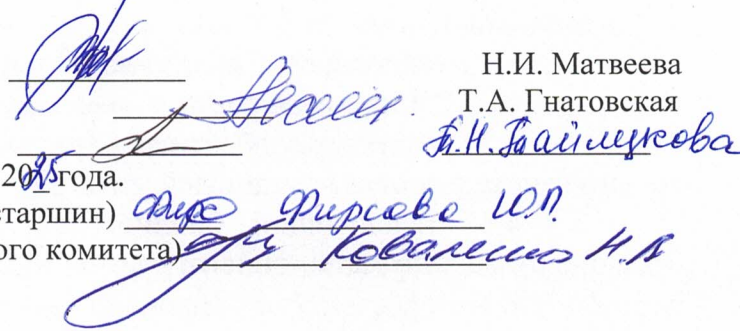 Н.И. Матвеева
Т.А. Гнатовская
Т.Н. Тайлукова
2025 года.
старшин) Фирсова Ю.П.
ого комитета) Коваленко Н.А